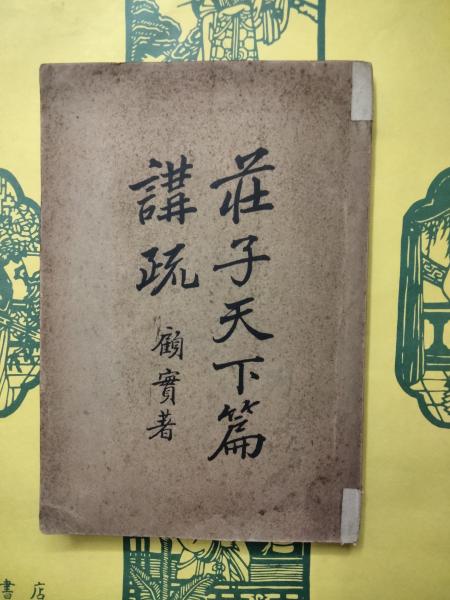 莊子天下篇
講疏
顧實著
書店